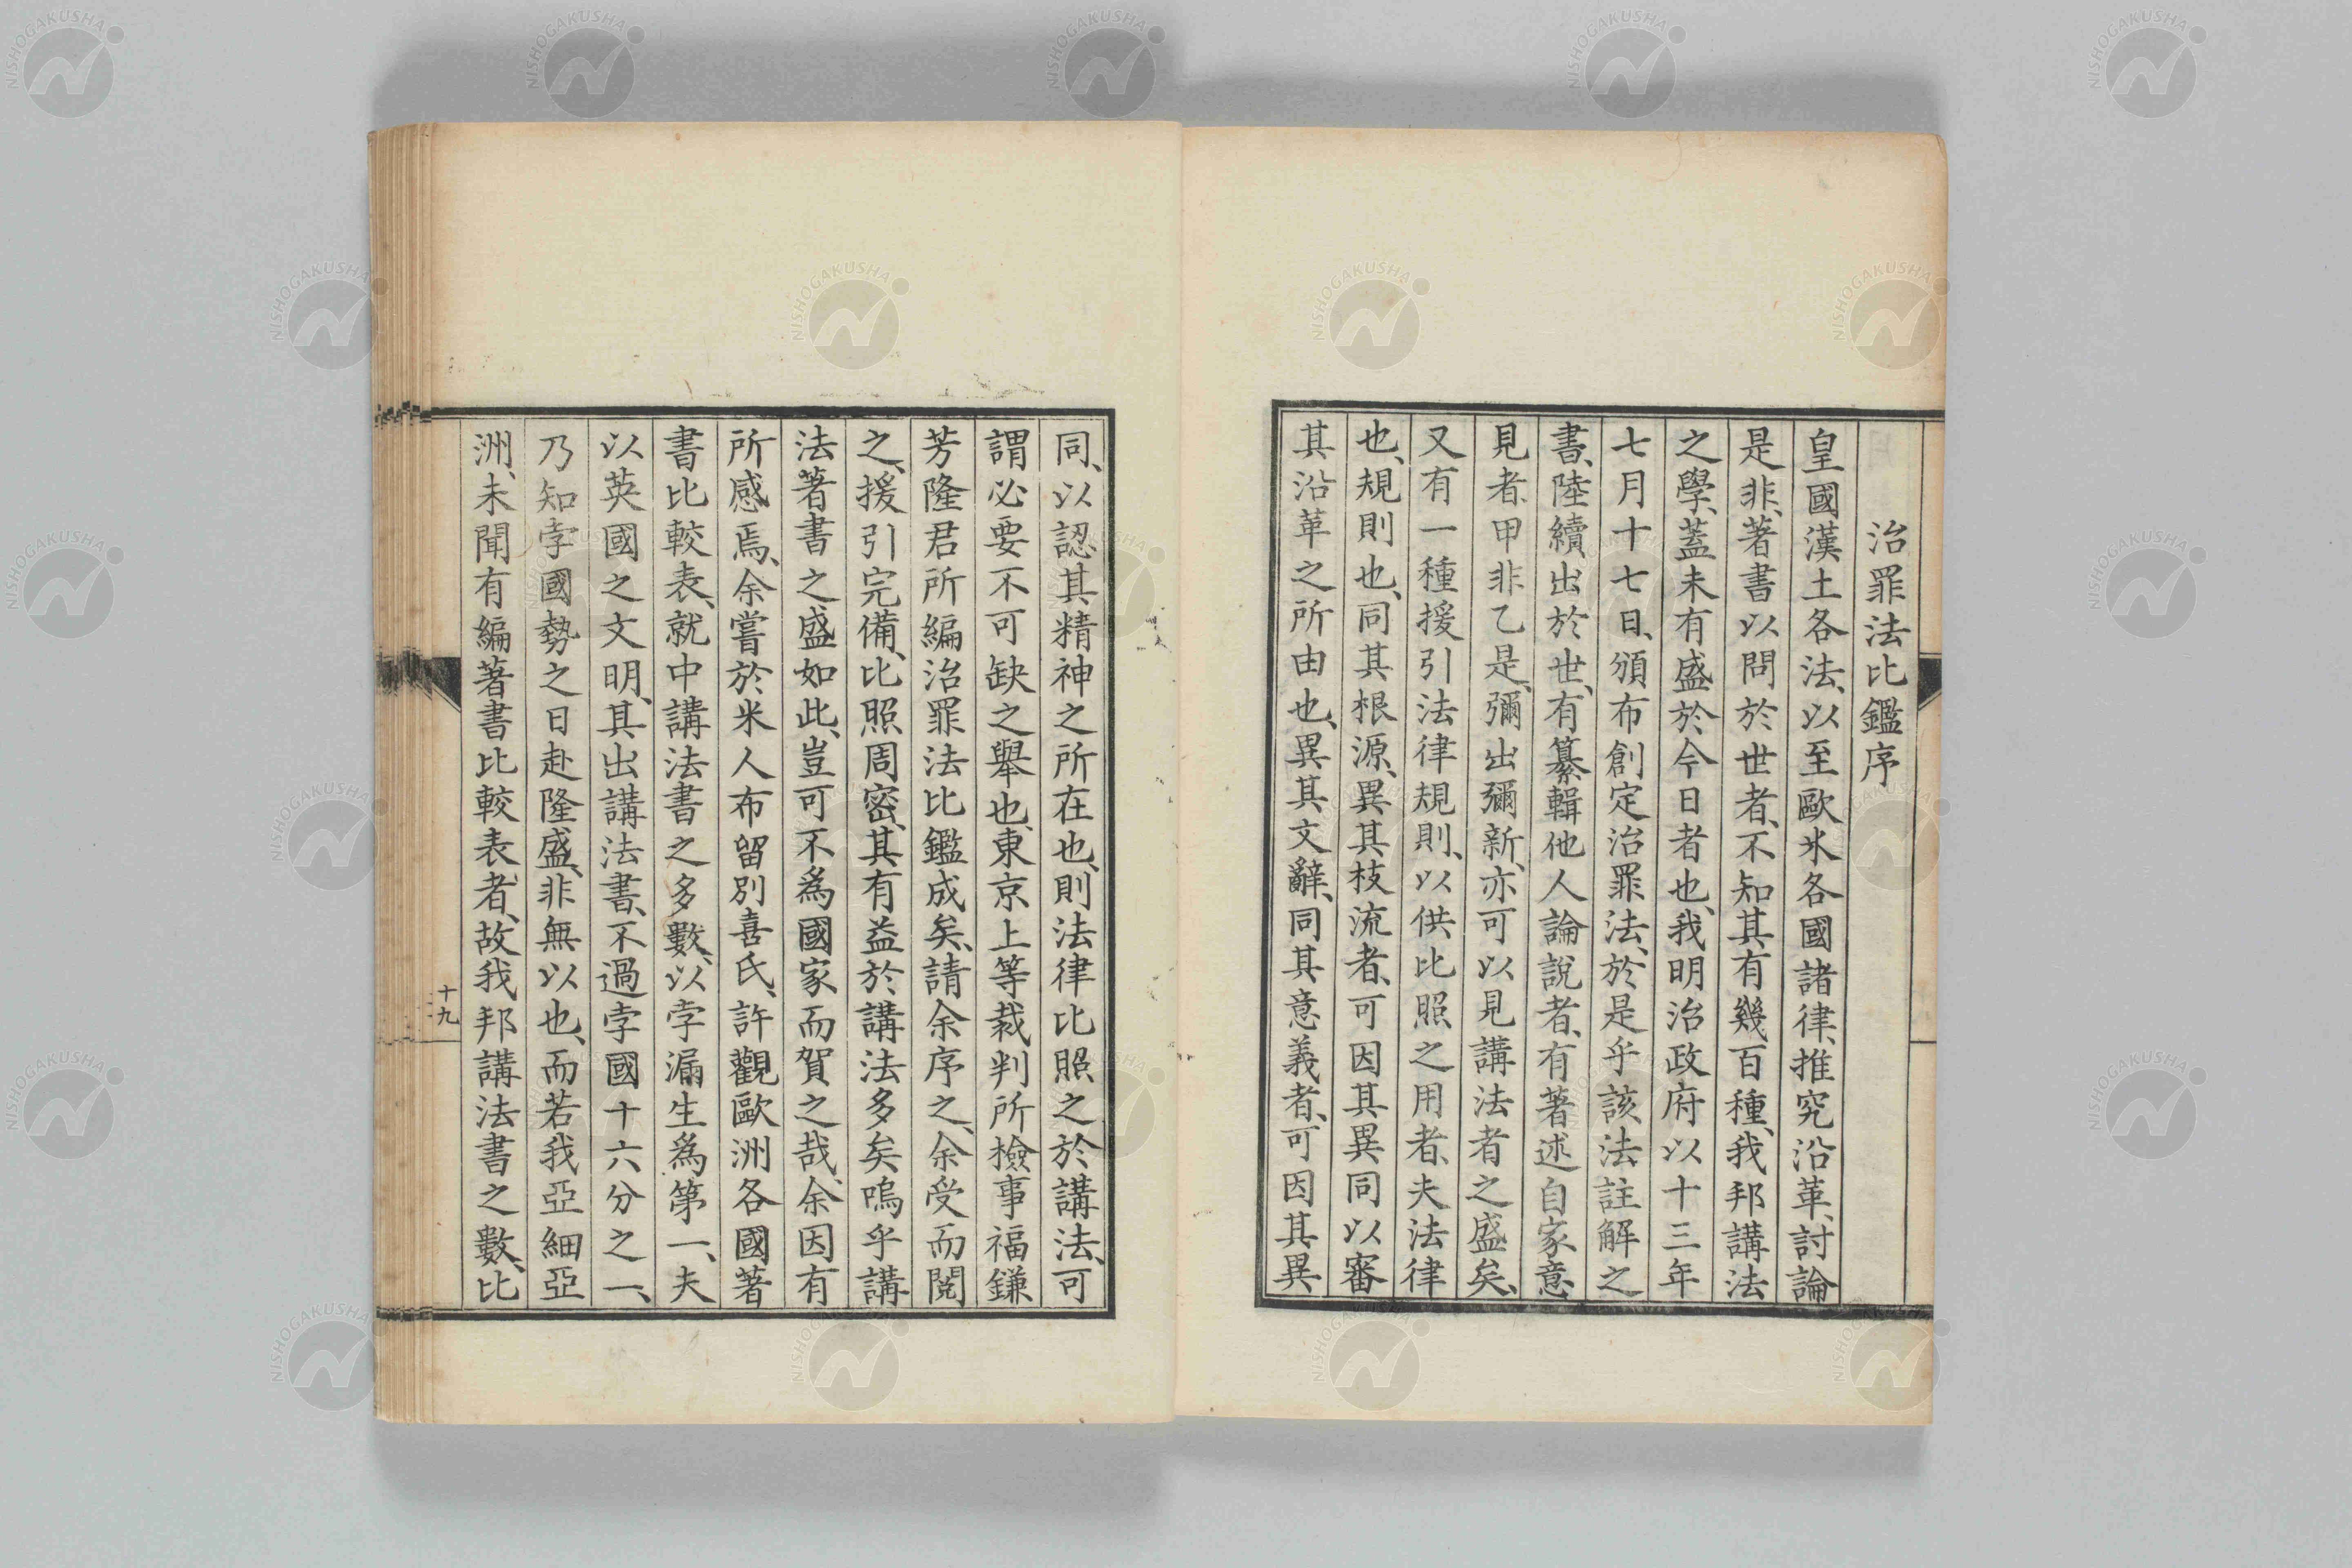 治罪法比鑑序
皇國漢土各法、以至歐米各國諸律、推究沿革、討論
是非、著書以問於世者、不知其有幾百種、我邦講法
之學、蓋未有盛於今日者也、我明治政府以十三年
七月十七日、頒布創定治罪法、於是乎該法註解之
書、陸續出於世、有纂輯他人論說者、有著述自家意
見者、甲非乙是、彌出彌新、亦可以見講法者之盛矣、
又有一種援引法律規則、以供比照之用者、夫法律
也、規則也、同其根源、異其枝流者、可因其異同以審
其沿革之所由也、異其文辭、同其意義者、可因其異
同、以認其精神之所在也、則法律比照之於講法、可
謂必要不可缺之舉也、東京上等裁判所檢事福鎌
芳隆君所編治罪法比鑑成矣、請余序之、余受而閱
之、援引完備、比照周密、其有益於講法多矣嗚乎講
法著書之盛如此、豈可不爲國家而賀之哉、余因有
所感焉、余嘗於米人布留別喜氏、許觀歐洲各國著
書比較表、就中講法書之多數、以孛漏生爲第一、夫
以英國之文明、其出講法書、不過孛國十六分之一、
乃知孛國勢之日赴隆盛、非無以也、而若我亞細亞
洲、未聞有編著書比較表者、故我邦講法書之數、比
十九
NISHOGAKUSHA